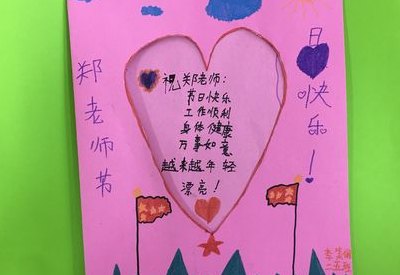 郑老师节
日快乐！
祝郑老师：
节日快乐
工作顺利
身体健康
万事如意
越来越年轻
漂亮！